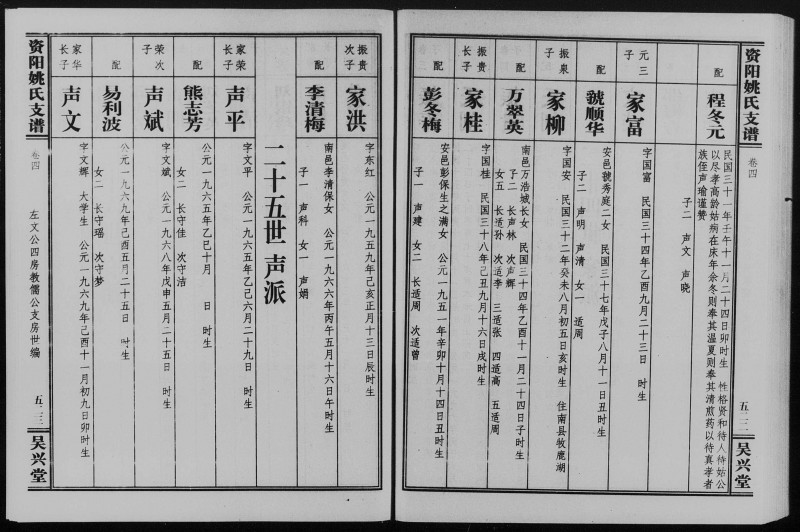 资阳姚氏支谱
卷四
五·三二
吴兴堂
配
程冬元
民国三十一年壬午十一月二十四日卯时生 性格贤和待人待姑公
以尽孝高龄姑病在床年余冬则奉其温夏则奉其清煎药以待真孝者
族侄声瑜谨赞
子二 声文 声晓
元三
子
家富
字国富 民国三十四年乙酉九月二十三日 时生
配
虢顺华
安邑虢秀庭二女 民国三十七年戊子八月十一日丑时生
子二 声明 声清 女一 适周
振泉
子
家柳
字国安 民国三十二年癸未八月初五日亥时生 住南县牧鹿湖
配
万翠英
南邑万浩城长女 民国三十四年乙酉十一月二十四日子时生
子二 长声林 次声辉
女五 长适孙 次适李 三适张 四适高 五适周
振贵
长子
家桂
字国桂 民国三十八年己丑九月十六日戌时生
配
彭冬梅
安邑彭保生之满女 公元一九五一年辛卯十月十四日丑时生
子一 声建 女二 长适周 次适曾
振贵
次子
家洪
字东红 公元一九五九年己亥正月十三日辰时生
配
李清梅
南邑李清保女 公元一九六六年丙午五月十六日午时生
子一 声科 女一 声娟
二十五世 声派
家荣
长子
声平
字文平 公元一九六五年乙己六月二十九日 时生
配
熊志芳
公元一九六五年乙巳十月 日 时生
女二 长守佳 次守洁
荣次
子
声斌
字文斌 公元一九六八年戊申五月二十五日 时生
配
易利波
公元一九六九年己酉五月二十五日 时生
女二 长守瑶 次守梦
家华
长子
声文
字文辉 大学生 公元一九六九年己酉十一月初九日卯时生
资阳姚氏支谱
卷四
左文公四房教儒公支房世编
五·三三
吴兴堂